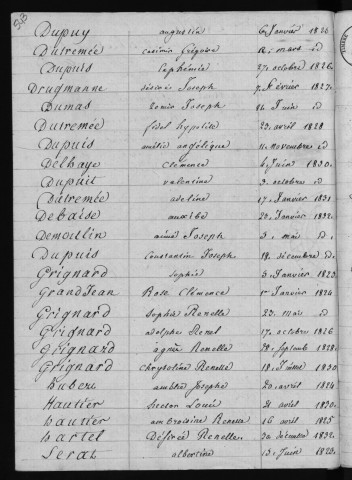 Dupuy augustin 6 Janvier 1826
Dutremée casimir Grégoire 12 mars id
Dupuis Euphémie 27 octobre 1826
Drugmanne désiré Joseph 7 février 1827
Dumas Joseph 14 Juin id
Dutremée fidel hypolite 23 avril 1828
Dupuis amélie angélique 11 novembre id
Delhaye Clémence 6 Juin 1830
Dupuit valentine 3 octobre id
Dutremée adeline 17 Janvier 1831
Debaise 24 Janvier 1832
Demoulin aimé Joseph 3 mai id
Dupuis Constantin Joseph 18 décembre id
Grignard Sophie 3 Janvier 1823
GrandJean Rose Clémence 1er Janvier 1824
Grignard Sophie Renelle 23 mai id
Grignard adolphe Renel 17 octobre 1826
Grignard agnès Renelle 28 Septemb 1828
Grignard Chrysoline Renelle 18 1830
Josephe 20 avril 1824
Hautier Louis 21 avril 1830
hautier ambroisine Renelle 16 avril 1825
hartel Désirée Renelle 30 décembre 1832
Serat albertine 13 Juin 1823